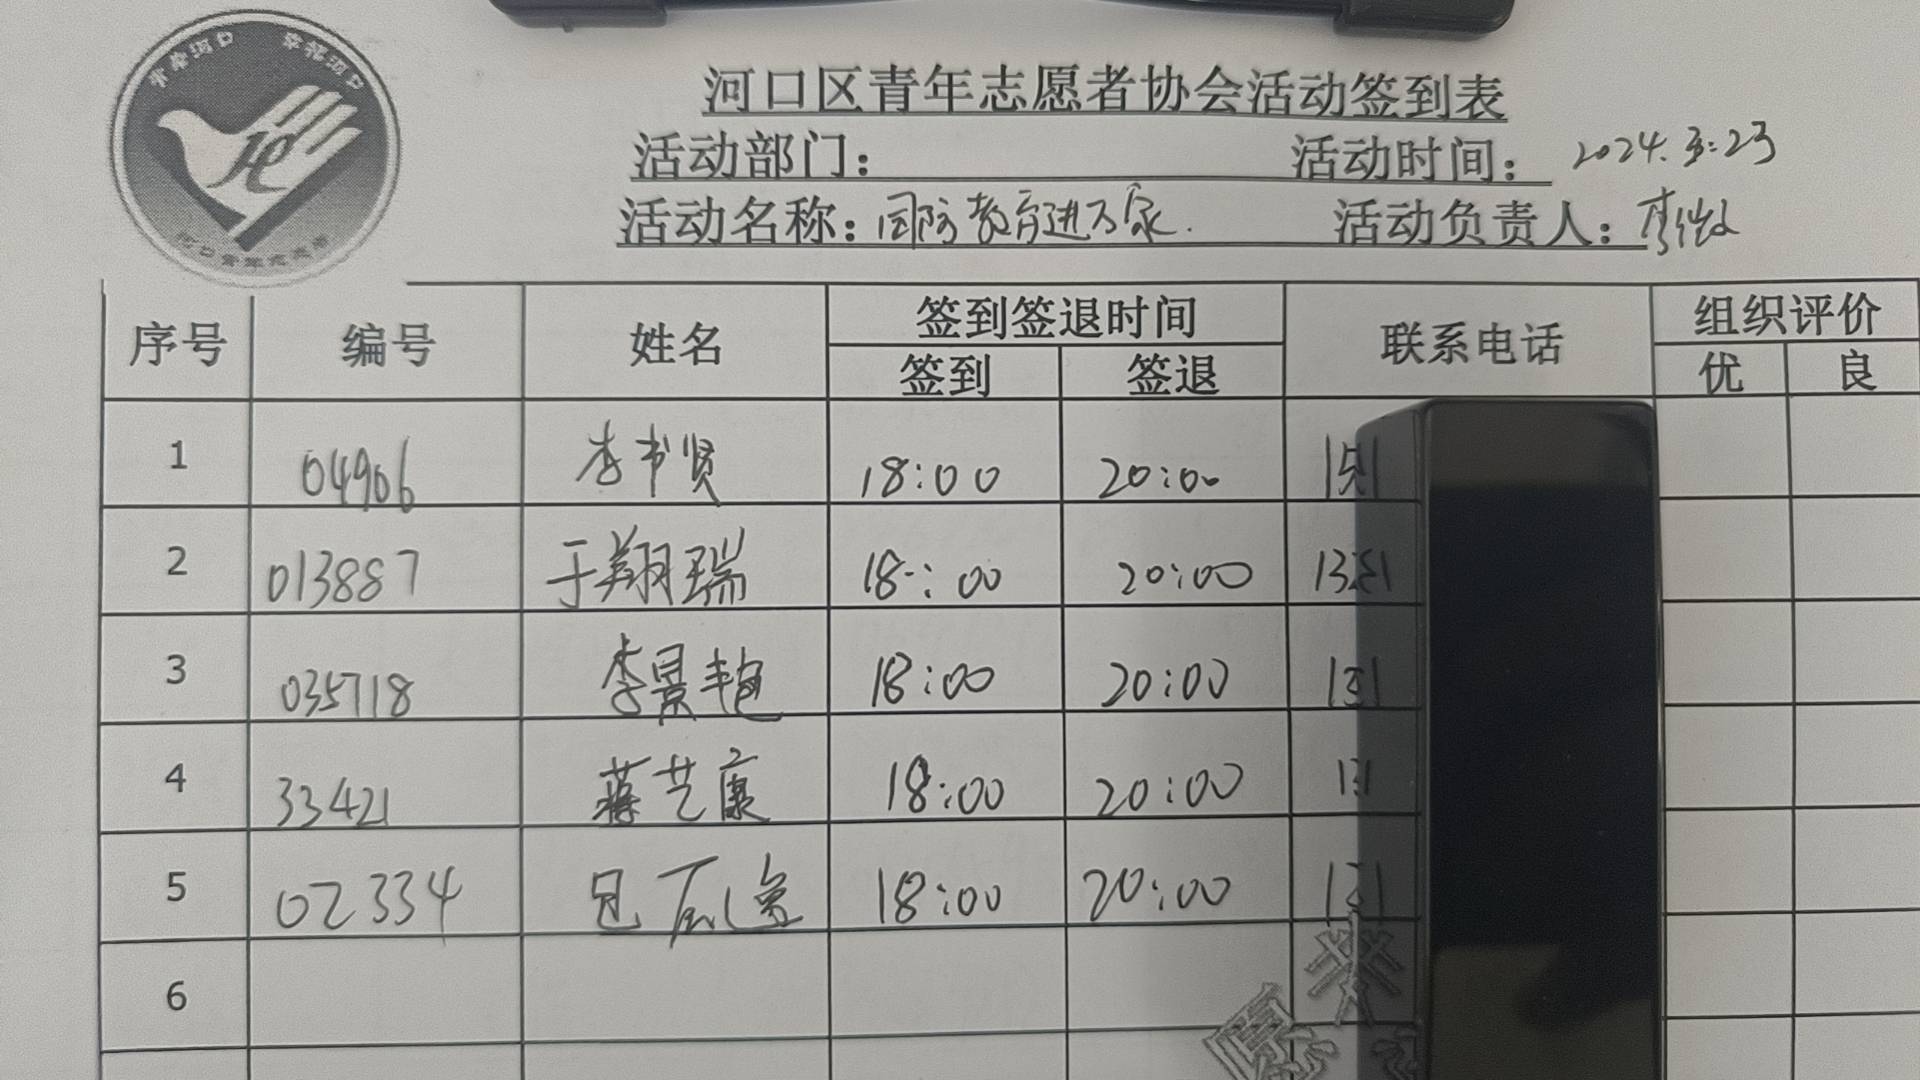 青春河口 幸福河口
河口青年志愿者
河口区青年志愿者协会活动签到表
活动部门： 活动时间：2024.3.23
活动名称：国防教育进万家. 活动负责人：李
序号 编号 姓名 签到签退时间 联系电话 组织评价
签到 签退 优 良
1 04906 李书贤 18:00 20:00
2 013887 于翔瑞 18:00 20:00
3 035718 李景 18:00 20:00
4 33421 蒋艺康 18:00 20:00
5 02334 18:00 20:00
6